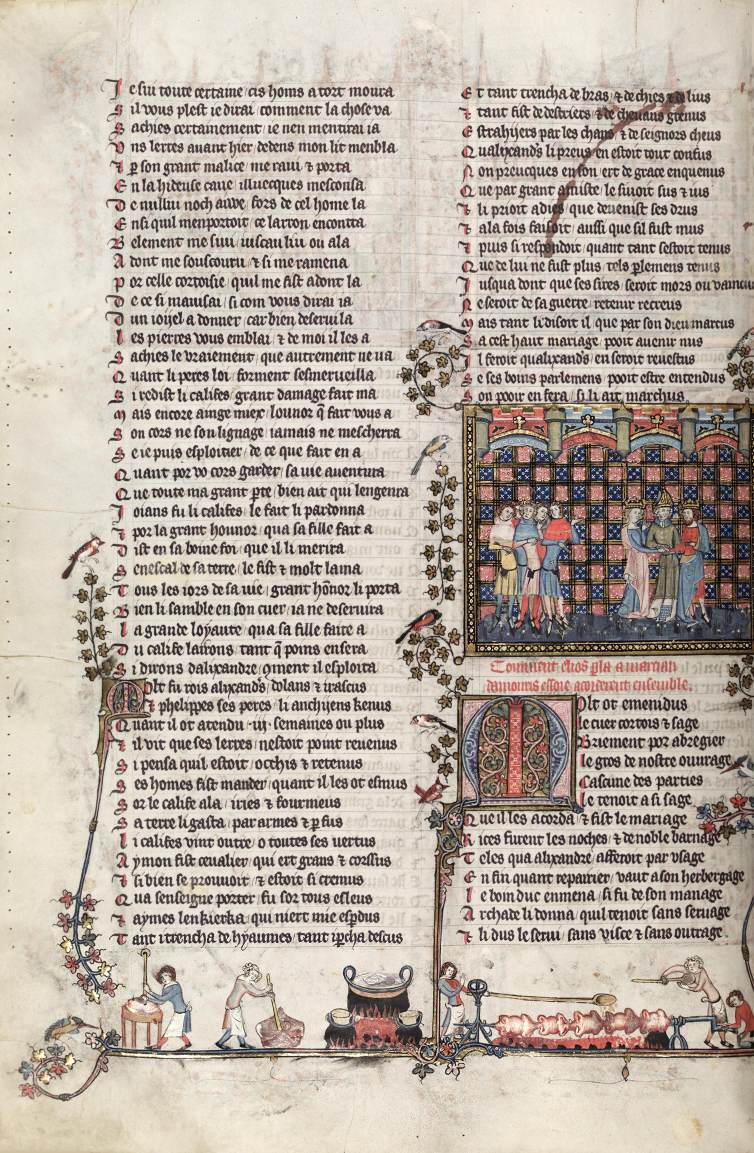 Je sui toute certaine cis homs a tort moura
Sil vous plest ie dirai comment la chose va
Sachies certainement ie nen mentirai ia
Uns lerres auant hier dedens mon lit menbla
Et p son grant malice me raui & porta
En la hideuse caue illuecques mesconsa
De nullui noch aiwe fors de cel home la
Ensi quil menportoit ce larron encontra
Belement me sui iuscau liu ou ala
Adont me souscouru & si me ramena
Por celle cortoisie quil me fist adont la
De ce si mauisai si com vous dirai ia
Dun ioijel a donner car bien deserui la
Les pierres vous emblai & de moi il les a
Sachies le vraiement que autrement ne ua
Quant li peres loi forment sesmerueilla
Si redist li califes grant damage fait ma
Mais encore ainge miex lounor q fait vous a
Son cors ne son lignage iamais ne meschera
Se ie puis esploitier de ce que fait en a
Quant por vo cors garder sa vie auentura
Que toute ma grant pte bien ait qui lengenra
Ioians fu li califes le fait li pardonna
Et por la grant hounor qua sa fille fait a
Dist en sa boine foi que il li merira
Senescal de sa terre le fist & molt lama
Tous les iors de sa uie grant honor li porta
Bien li samble en son cuer ia ne deseruira
La grande loyaute qua sa fille faite a
Du calife lairons tant q poins en sera
Si dirons dalixandre oment il esploita
Molt fu rois alixands dolans & irascus
Et phelippes ses peres li anchijens kenus
Quant il ot atendu .iii. semaines ou plus
Et il vit que ses lerres nestoit point reuenus
Si pensa quil estoit occhis & retenus
Ses homes fist mander quant il les ot esmus
Sor le calife ala iries & fourmeus
Sa terre li gasta par armes & p fus
Li califes vint outre o toutes ses uertus
Aymon fist ceualier qui ert grans & corssus
Et si bien se prouuoit & estoit si cremus
Qua senseigne porter fu sor tous esleus
Et aymes lenkierka qui niert mie espdus
Tant i trencha de hyaumes tant ipcha descus
Et tant trencha de bras & de chies & de bus
Et tant fist de destriers & de cheuaus grenus
Estrahijers par les chans & de seignors cheus
Qualixands li preus en estoit tout confus
Non preucques en son ert de grace enquenus
Que par grant amiste le siuoit sus & ius
Et li prioit a dieu que deuenist ses drus
Et a la fois faisoit aussi que sil fust mus
Et puis si respondoit quant tant sestoit tenus
Que de lui ne fust plus tels plemens tenus
Iusqua dont que ses sires seroit mors ou vaincus
Ne seroit de sa guerre retenir recreus
Mais tant li disoit il que par son dieu marcus
Sa cest haut mariage pooit auenir nus
Il feroit qualixands en seroit reuestus
Se ses boins parlemens pooit estre entendus
Son pooir en fera si li ait marchus
Comment
acorderent ensemble.
Molt ot emenidus
le cuer cortois & sage
Briement por abregier
le gros de nostre ouurage
Cascune des parties
le tenoit a si sage
Que il les acorda & fist le mariage
Rices furent les noches & de noble barnage
Teles qua alixandre afferoit par vsage
En fin quant repairier vaut a son herbergage
Le bom duc enmena si fu de son manage
Archade li donna quil tenoit sans seruage
Et li dus le serui sans visce & sans outrage